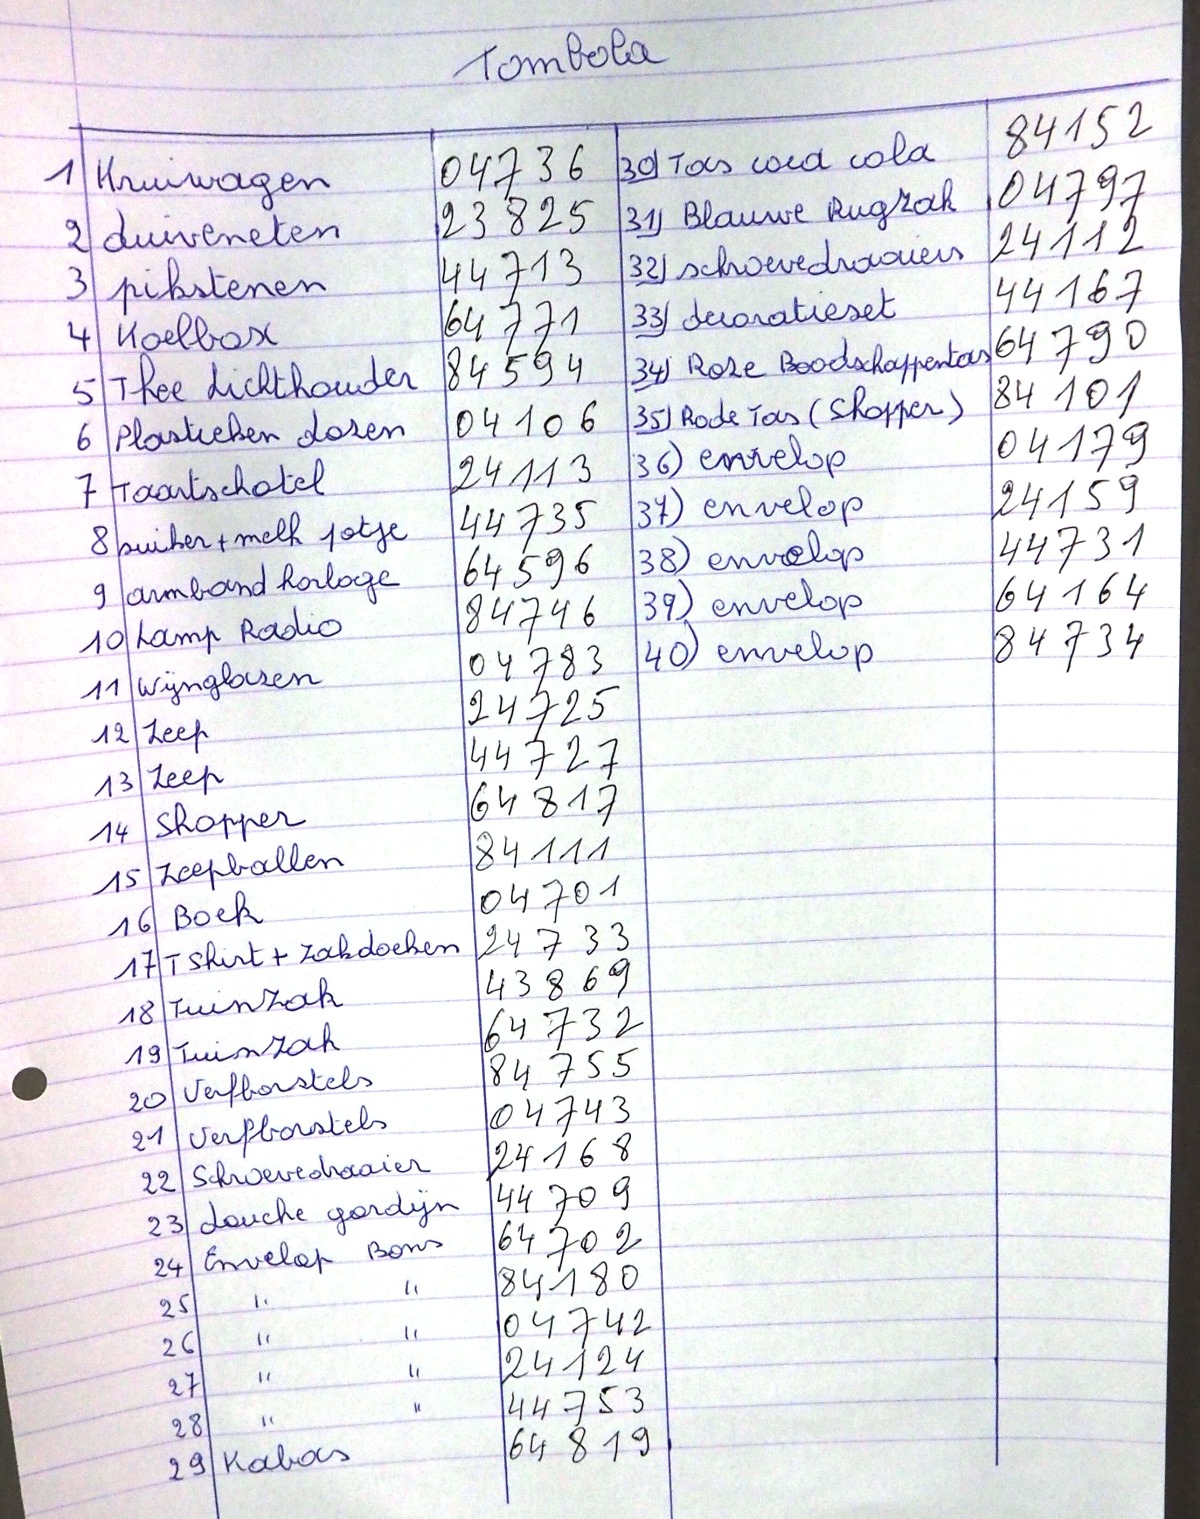 Tombola
1 Kruiwagen 04736
2 duiveneten 23825
3 pikstenen 44713
4 Koelbox 64771
5 Thee lichthouder 84594
6 Plastieken dozen 04106
7 Taartschotel 24113
8 suiker + melk potje 44735
9 armband horloge 64596
10 Lamp Radio 84746
11 Wijnglazen 04783
12 Zeep 24725
13 Zeep 44727
14 Shopper 64817
15 Zeepballen 84111
16 Boek 04701
17 T Shirt + Zakdoeken 24733
18 Tuinzak 43869
19 Tuinzak 64732
20 Verfborstels 84755
21 Verfborstels 04743
22 Schroevedraaier 24168
23 douche gordijn 44709
24 Envelop Bons 64702
25 " " 84180
26 " " 04742
27 " " 24124
28 " " 44753
29 Kabas 64819
30) Tas coca cola 84152
31) Blauwe Rugzak 04797
32) schroevedraaiers 24112
33) decoratieset 44167
34) Roze Boodschappentas 64790
35) Rode Tas (Shopper) 84101
36) envelop 04179
37) envelop 24159
38) envelop 44731
39) envelop 64164
40) envelop 84734